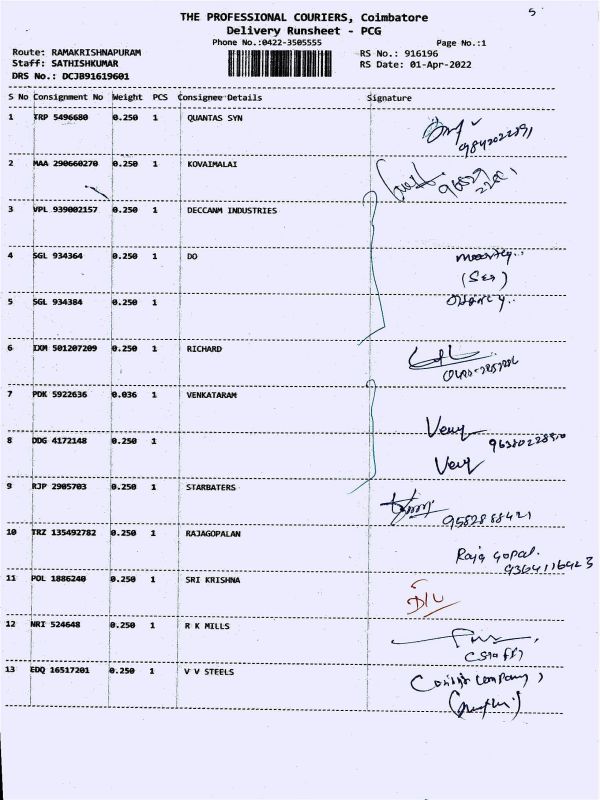 5
THE PROFESSIONAL COURIERS, Coimbatore
Delivery Runsheet - PCG
Phone No.:0422-3505555 Page No.:1
Route: RAMAKRISHNAPURAM RS No.: 916196
Staff: SATHISHKUMAR RS Date: 01-Apr-2022
DRS No.: DCJB91619601
S No Consignment No Weight PCS Consignee Details Signature
1 TRP 5496680 0.250 1 QUANTAS SYN
9842022891
2 MAA 290660270 0.250 1 KOVAIMALAI
3 VPL 939002157 0.250 1 DECCANM INDUSTRIES
4 SGL 934364 0.250 1 DO
5 SGL 934384 0.250 1
6 IXM 501207209 0.250 1 RICHARD
7 PDK 5922636 0.036 1 VENKATARAM
Veny
8 DDG 4172148 0.250 1
Veny
9 RJP 2905703 0.250 1 STARBATERS
9582888421
10 TRZ 135492782 0.250 1 RAJAGOPALAN
Raja Gopal.
9364116423
11 POL 1886240 0.250 1 SRI KRISHNA
D/L
12 NRI 524648 0.250 1 R K MILLS
13 EDQ 16517201 0.250 1 V V STEELS